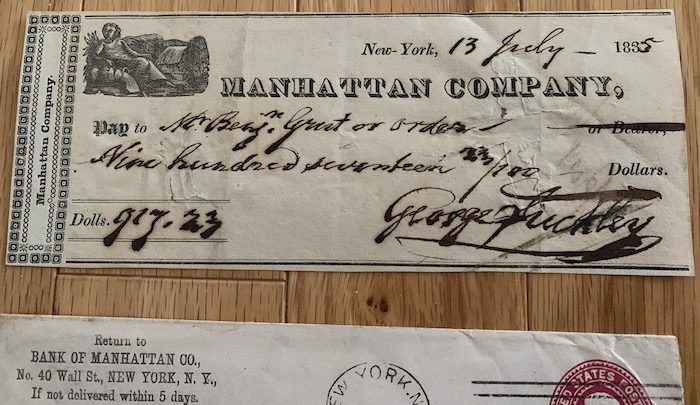 Manhattan Company.
New-York, 13 July - 1835
MANHATTAN COMPANY,
Pay to Mr Benjn. Grut or order or Bearer,
Nine hundred seventeen 23/100 Dollars.
Dolls. 917.23
George
Return to
BANK OF MANHATTAN CO.,
No. 40 Wall St., NEW YORK, N. Y.,
If not delivered within 5 days.
NEW YORK, N.
UNITED STATES POST